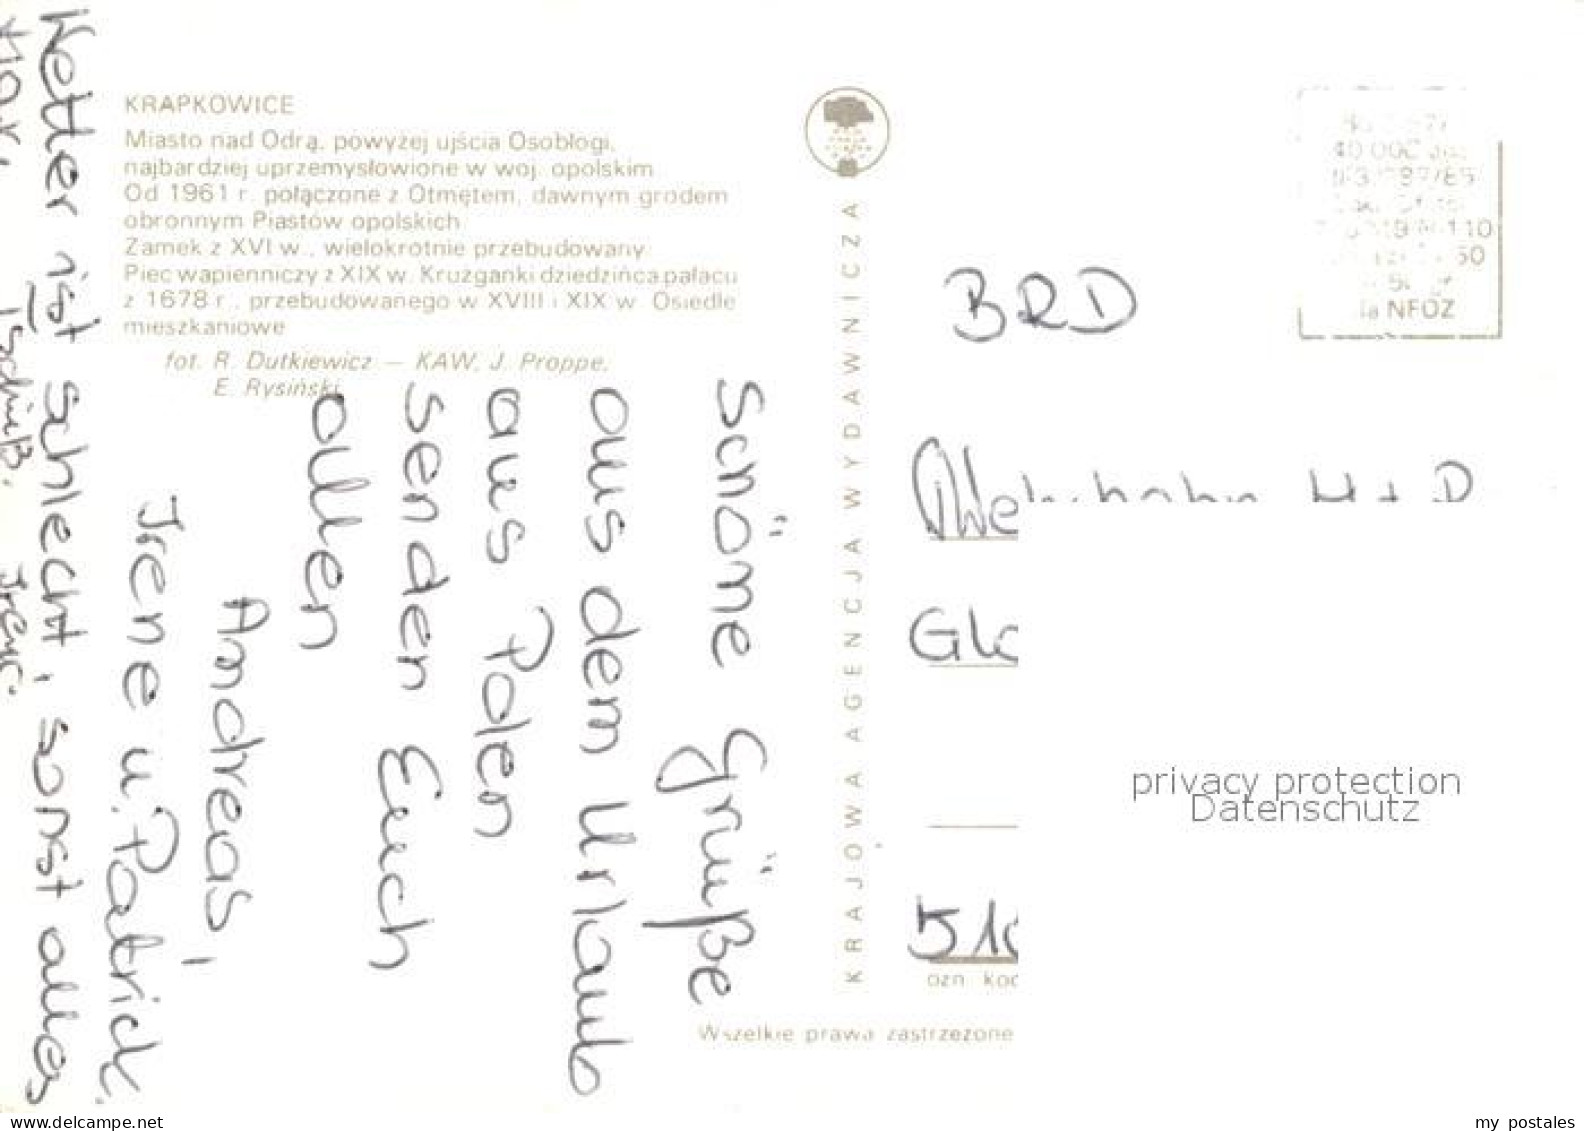 KRAPKOWICE
Miasto nad Odrą, powyżej ujścia Osobłogi,
najbardziej uprzemysłowione w woj. opolskim.
Od 1961 r. połączone z Otmętem, dawnym grodem
obronnym Piastów opolskich.
Zamek z XVI w., wielokrotnie przebudowany.
Piec wapienniczy z XIX w. Krużganki dziedzińca pałacu
z 1678 r., przebudowanego w XVIII i XIX w. Osiedle
mieszkaniowe
fot. R. Dutkiewicz — KAW, J. Proppe,
E. Rysiński
Schöne Grüße
aus dem Urlaub
aus Polen
senden Euch
allen
Andreas,
Irene u. Patrick.
Wetter ist schlecht, sonst alles
klar.
Tschüß.
Irene.
KRAJOWA AGENCJA WYDAWNICZA
40 000
la NFOZ
BRD
H + D
510
ozn. kod
Wszelkie prawa zastrzeżone
privacy protection
Datenschutz
www.delcampe.net
my postales